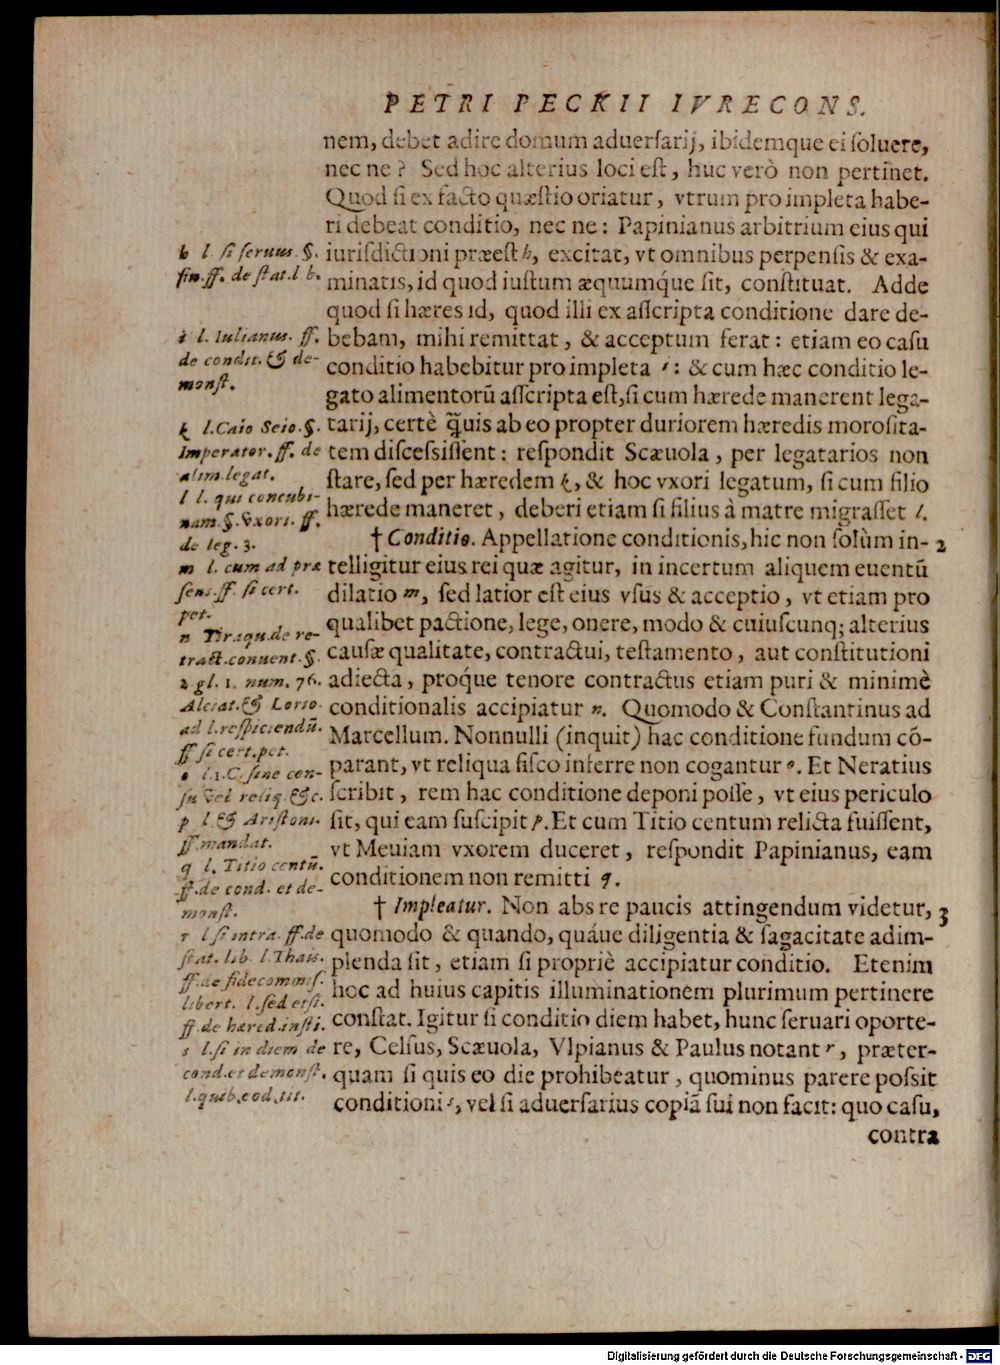 PETRI PECKII IVRECONS.
nem, debet adire domum aduerſarij, ibidemque ei ſoluere,
nec ne? Sed hoc alterius loci eſt, huc verò non pertinet.
Quod ſi ex facto quæſtio oriatur, vtrum pro impleta habe-
ri debeat conditio, nec ne: Papinianus arbitrium eius qui
iuriſdictioni præeſt h, excitat, vt omnibus perpenſis & exa-
minatis, id quod iuſtum æquumq́ue ſit, conſtituat. Adde
quod ſi hæres id, quod illi ex aſſcripta conditione dare de-
bebam, mihi remittat, & acceptum ferat: etiam eo caſu
conditio habebitur pro impleta i: & cum hæc conditio le-
gato alimentorū aſſcripta eſt, ſi cum hærede manerent lega-
tarij, certè q̃uis ab eo propter duriorem hæredis moroſita-
tem diſceſsiſſent: reſpondit Scæuola, per legatarios non
ſtare, ſed per hæredem k, & hoc vxori legatum, ſi cum filio
hærede maneret, deberi etiam ſi filius à matre migraſſet l.
† Conditio. Appellatione conditionis, hic non ſolùm in-
telligitur eius rei quæ agitur, in incertum aliquem euentū
dilatio m, ſed latior eſt eius vſus & acceptio, vt etiam pro
qualibet pactione, lege, onere, modo & cuiuſcunq; alterius
cauſæ qualitate, contractui, teſtamento, aut conſtitutioni
adiecta, proq́ue tenore contractus etiam puri & minimè
conditionalis accipiatur n. Quomodo & Conſtantinus ad
Marcellum. Nonnulli (inquit) hac conditione fundum cō-
parant, vt reliqua fiſco inferre non cogantur o. Et Neratius
ſcribit, rem hac conditione deponi poſſe, vt eius periculo
ſit, qui eam ſuſcipit p. Et cum Titio centum relicta fuiſſent,
vt Meuiam vxorem duceret, reſpondit Papinianus, eam
conditionem non remitti q.
† Impleatur. Non abs re paucis attingendum videtur,
quomodo & quando, quáue diligentia & ſagacitate adim-
plenda ſit, etiam ſi propriè accipiatur conditio. Etenim
hoc ad huius capitis illuminationem plurimum pertinere
conſtat. Igitur ſi conditio diem habet, hunc ſeruari oporte-
re, Celſus, Scæuola, Vlpianus & Paulus notant r, præter-
quam ſi quis eo die prohibeatur, quominus parere poſsit
conditioni s, vel ſi aduerſarius copiā ſui non facit: quo caſu,
contra
h l. ſi ſeruus. §.
fin. ff. de ſtat. l b.
i l. Iulianus. ff.
de condit. & de-
monſt.
k l. Caio Seio. §.
Imperator. ff. de
alim. legat.
l l. qui concubi-
nam. §. vxori. ff.
de leg. 3.
m l. cum ad præ
ſens. ff. ſi cert.
pet.
n Tiraqu. de re-
tract. conuent. §.
2 gl. 1. num. 76.
Alciat. & Lorio.
ad l. reſpiciendū.
ff ſi cert. pet.
o l. 1. C. ſine cen-
ſu vel reliq. &c.
p l. & Ariſtoni.
ff. mandat.
q l. Titio centū.
ff. de cond. et de-
monſt.
r l ſi intra. ff. de
ſtat. lib. l. Thais.
ff. de fidecommiſ.
libert. l. ſed etſi.
ff. de hæred. inſti.
s l. ſi in diem de
cond. et demonſt.
l. quib. eod. tit.
2
3
Digitalisierung gefördert durch die Deutsche Forschungsgemeinschaft - DFG